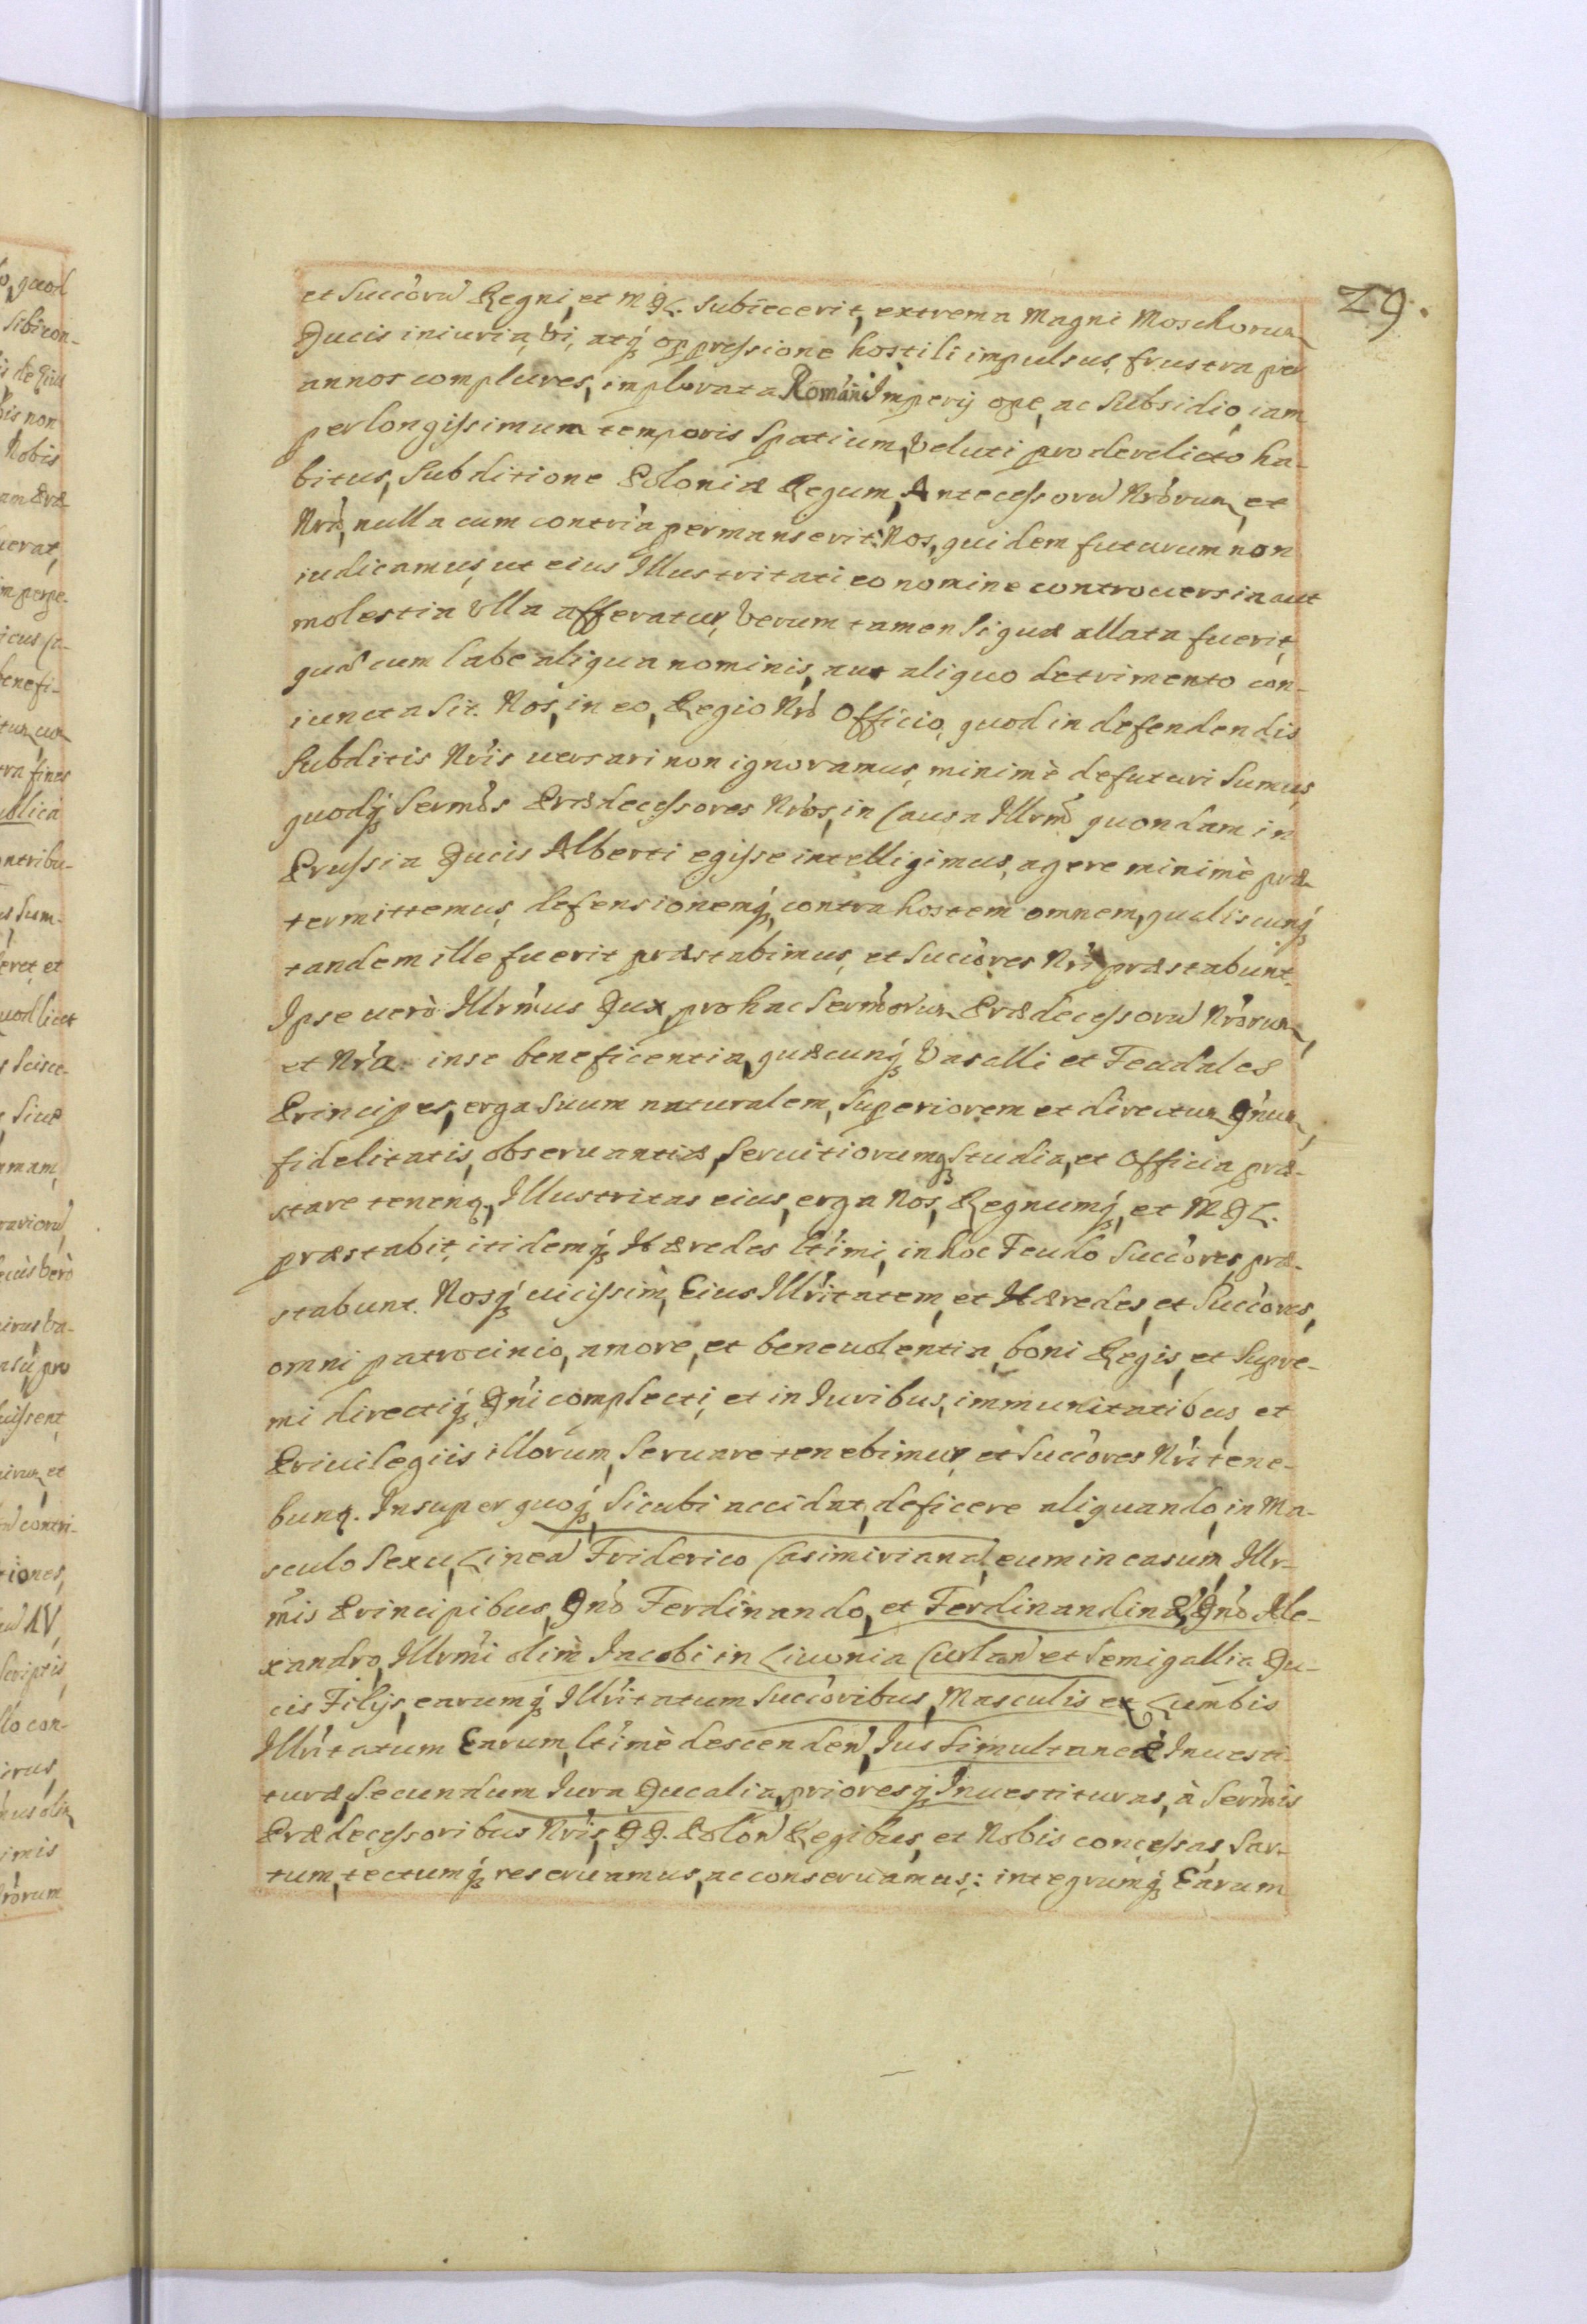 29.
et Succ̃orũ Regni, et M D L. Subiecerit, extrema Magni Moschorum
Ducis iniuria, vi, atq́ oppressione hostili impulsus, frustra per
annos complures, implorata Romani Imperij ope, ac Subsidio, iam
perlongissimum temporis Spatium, veluti pro derelicto ha-
bitus, Subditione Poloniæ Regum, Antecessorũ Nr̃orum, et
Nr̃a, nulla cum contr̃ia permanserit: Nos, quidem futurum non
iudicamus, ut eius Illustritati eo nomine controuersia aut
molestia ulla afferatur, verum tamen Si quæ allata fuerit,
quæ cum labe aliqua nominis, aut aliquo detrimento con-
iuncta Sit. Nos, in eo, Regio Nr̃o Officio, quod in defendendis
Subditis Nr̃is uersari non ignoramus, minimè defuturi Sumus,
quodq́ Serm̃os Prædecessores Nr̃os, in Causa Illrmĩ quondam in
Prussia Ducis Alberti egisse intelligimus, agere minimè præ-
termittemus, defensionemq́, contra hostem omnem, qualiscunq́
tandem ille fuerit præstabimus, et Succ̃ores Nr̃i præstabunt.
Ipse uerò Illrm̃us Dux, pro hac Serm̃orum Prædecessorũ Nr̃orum,
et Nr̃a in se beneficentia, quæcunq́ Vasalli et Feudales
Principes, erga Suum naturalem, Superiorem et directum Dñum,
fidelitatis, obseruantiæ, Seruitiorumq́ Studia, et Officia præ-
stare tenenq., Illustritas eius, erga Nos, Regnumq́, et M D L.
præstabit, itidemq́ Hæredes Ltĩmi, in hoc Feudo Succ̃ores, præ-
stabunt. Nosq́ uicissim, Eius Illr̃itatem, et Hæredes, et Succ̃ores,
omni patrocinio, amore, et beneuolentia, boni Regis, et Supre-
mi directiq́, Dñi complecti, et in Iuribus, immunitatibus, et
Priuilegiis illorum, Seruare tenebimur, et Succ̃ores Nr̃i tene-
bunq. Insuper quoq́, Sicubi accidat, deficere aliquando, in Ma-
sculo Sexu, Lineã Friderico Casimirianã, eum in casum, Illr-
m̃is Principibus, Dño Ferdinando, et Ferdinandinæ, Dño Ale-
xandro, Illrm̃i olim Iacobi in Liuonia Curlan̄ et Semigallia Du-
cis Filijs, earumq́ Illr̃itatum Succ̃oribus, Masculis ex Lumbis
Illr̃itatum Earum, Ltĩmè descenden̄, Ius Simultaneæ Inuesti-
turæ, Secundum Iura Ducalia, prioresq́ Inuestituras, à Serm̃is
Prædecessoribus Nr̃is, D D. Polon̄ Regibus, et Nobis concessas, Sar-
tum, tectumq́ reseruamus, ac conseruamus; integrumq́ Earum